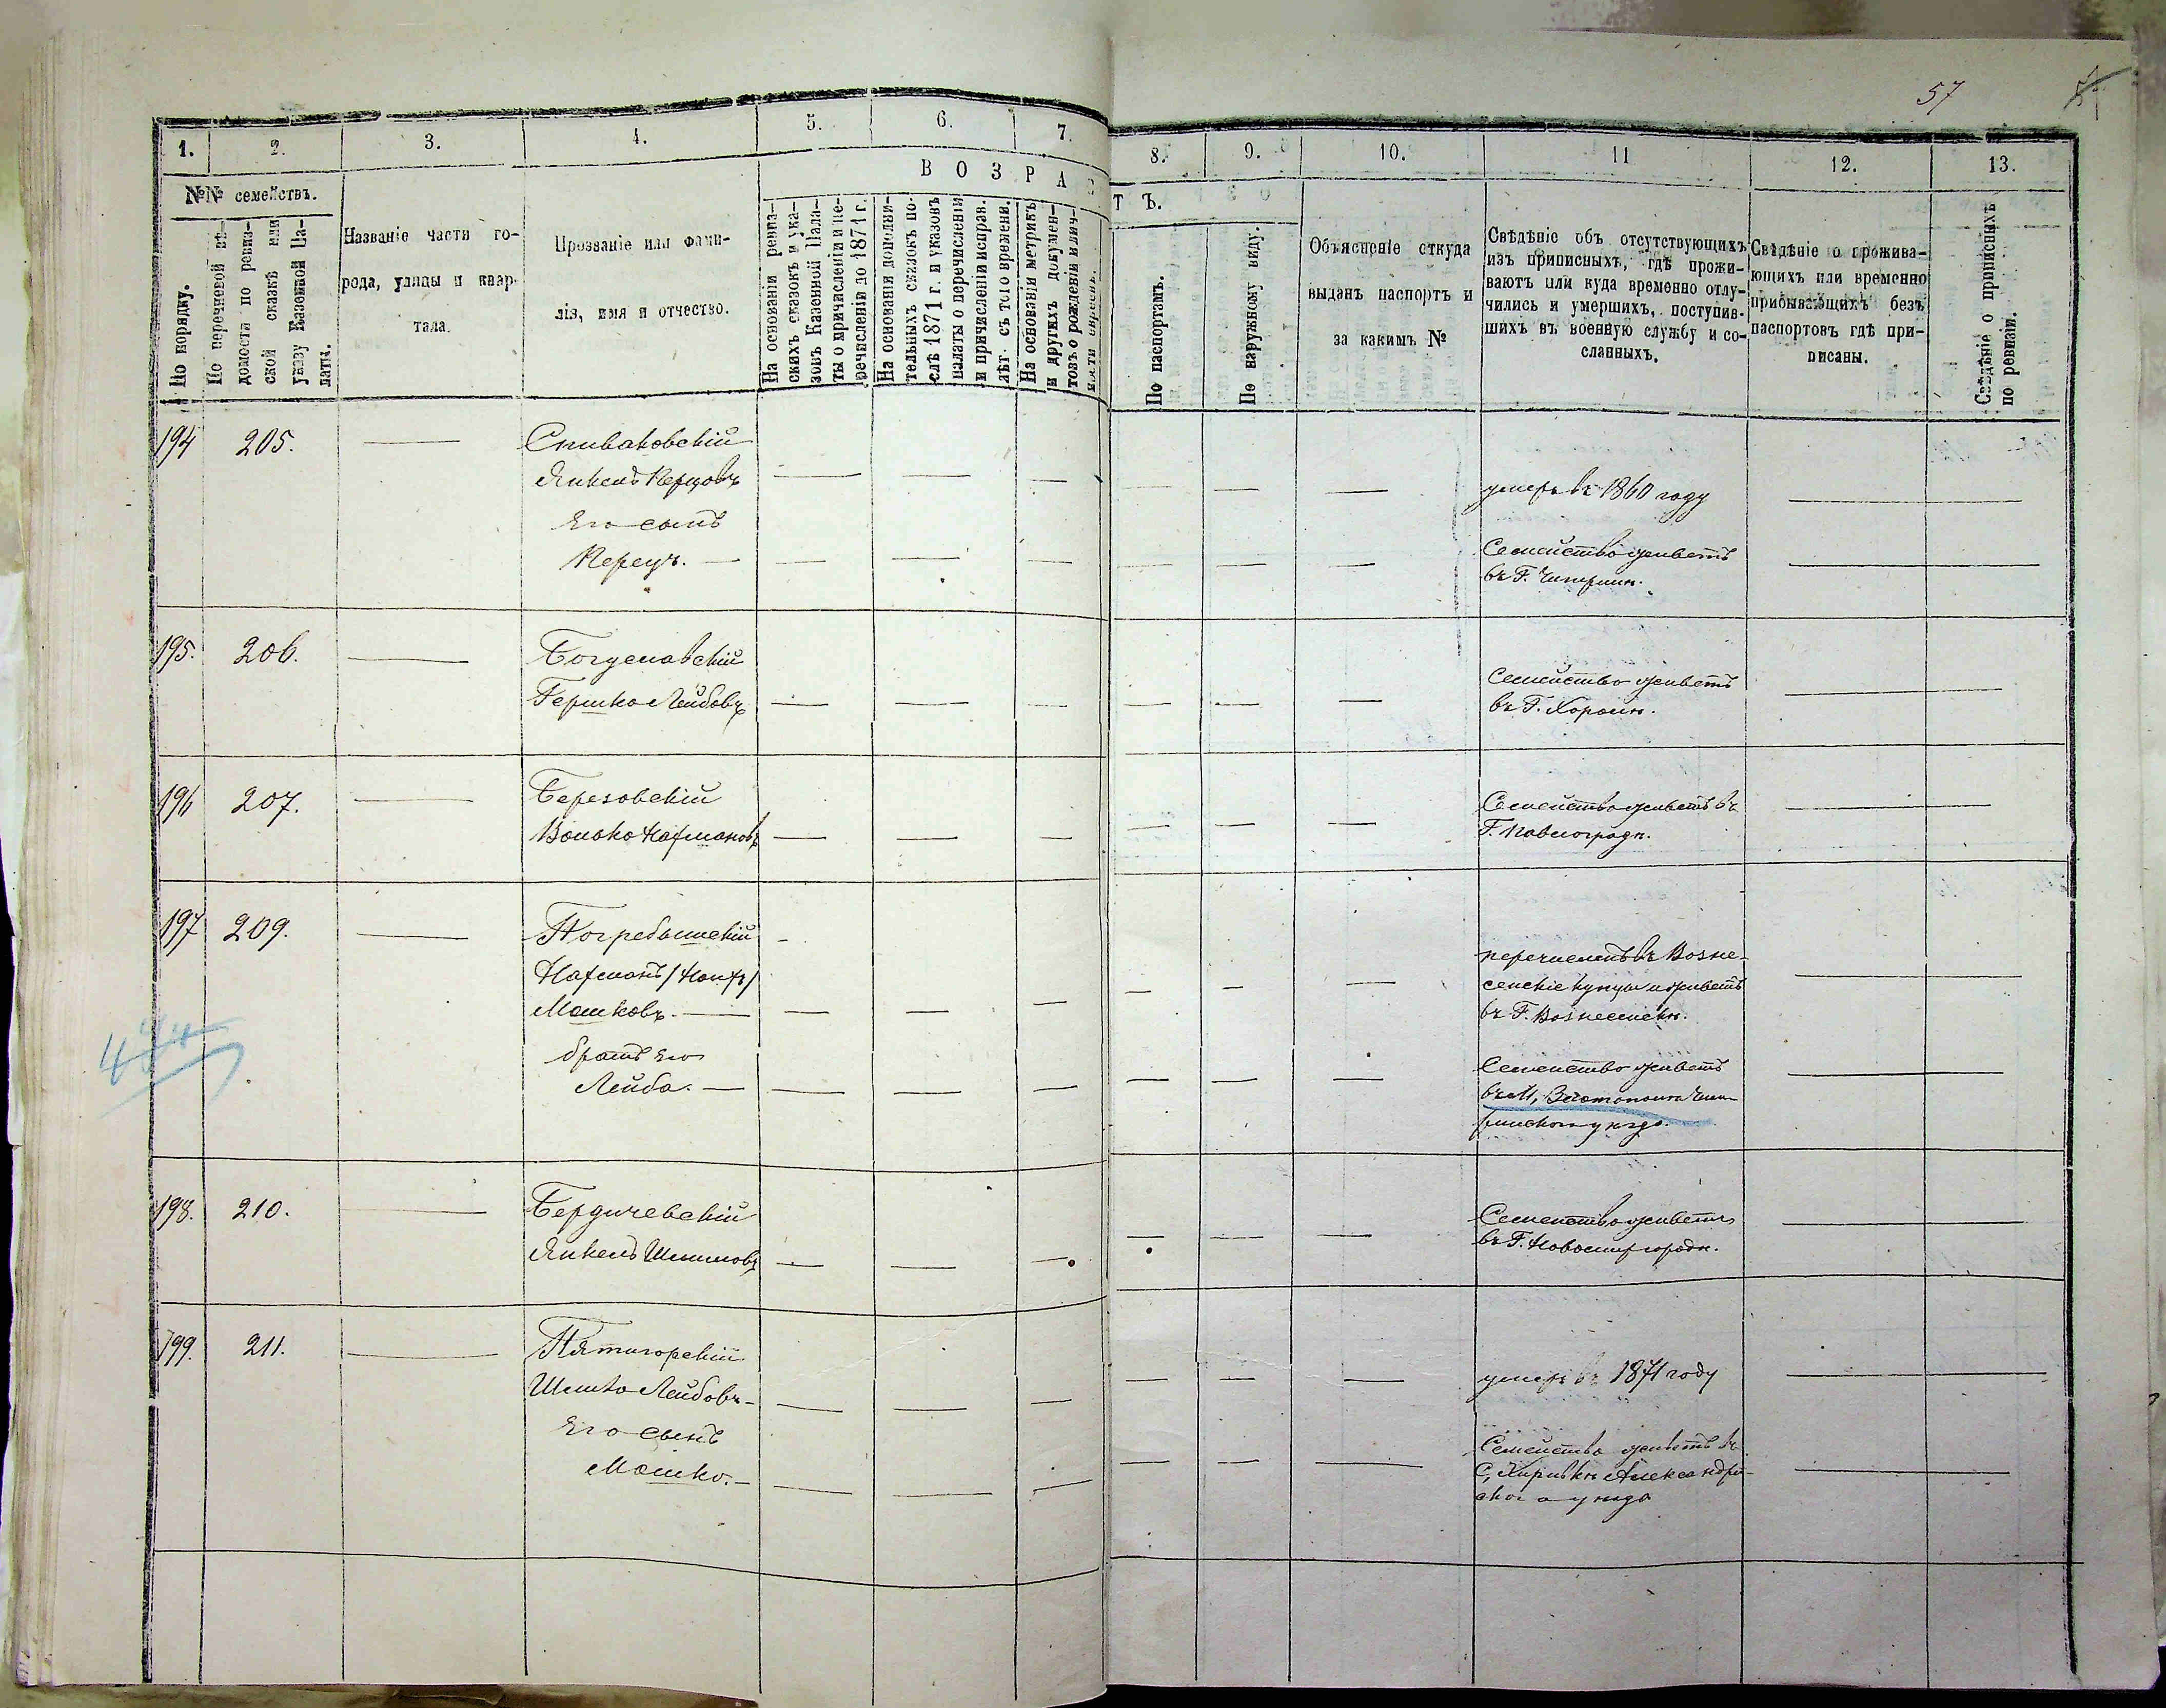 57
1. 2. 3. 4. 5. 6. 7. 8. 9. 10. 11 12. 13.
№№ семействъ.
В О З Р А С Т Ъ.
По порядку.
По перечневой вѣ-
домости по ревиз-
ской сказкѣ или
указу Казенной Па-
латы.
Названіе части го-
рода, улицы и квар-
тала.
Прозваніе или фами-
лія, имя и отчество.
На основаніи ревиз-
скихъ сказокъ и ука-
зовъ Казенной Пала-
ты о причисленіи и пе-
речисленіи до 1871 г.
На основаніи дополни-
тельныхъ сказокъ по-
слѣ 1871 г. и указовъ
палаты о перечисленіи
и причисленіи исправ.
лѣт. съ того времени.
На основаніи метрикъ
и другихъ докумен-
товъ о рожденіи и лич-
ности евреевъ.
По паспортамъ.
По наружному виду.
Объясненіе откуда
выданъ паспортъ и
за какимъ №
Свѣдѣніе объ отсутствующихъ
изъ приписныхъ, гдѣ прожи-
ваютъ или куда временно отлу-
чились и умершихъ, поступив-
шихъ въ военную службу и со-
сланныхъ.
Свѣдѣніе о прожива-
ющихъ или временно
прибывающихъ безъ
паспортовъ гдѣ при-
писаны.
Свѣдѣніе о приписныхъ
по ревизіи.
194 205. — Спиваковскій
Янкель Перцовъ — — — — — — умеръ въ 1860 году —
Его сынъ
Перецъ. — — — — — — — Семейство живетъ —
въ Г. Чигиринѣ.
195. 206. — Богуславскій
Гершко Лейбовъ — — — — — — Семейство живетъ —
въ Г. Хоролѣ.
196 207. — Березовскій
Волько Нахмановъ — — — — — — Семейство живетъ въ —
Г. Павлоградѣ.
197 209. — Погребыскій
Нахманъ /
Мошковъ. — — — — — — — перечисленъ въ Возне-
сенскіе купцы и живетъ
въ Г. Вознесенскѣ.
братъ его
Лейба. — — — — — — — Семейство живетъ —
въ М, Златополѣ Чиги-
ринскаго уѣзда.
198. 210. — Бердичевскій
Янкель Шлимовъ — — — — — — Семейство живетъ —
въ Г. Новомиргородѣ.
199. 211. — Пятигорскій
Шлико Лейбовъ — — — — — — умеръ въ 1871 году —
Его сынъ
Мошко. — — — — — — — Семейство живетъ въ —
С, Александрій-
скаго уѣзда